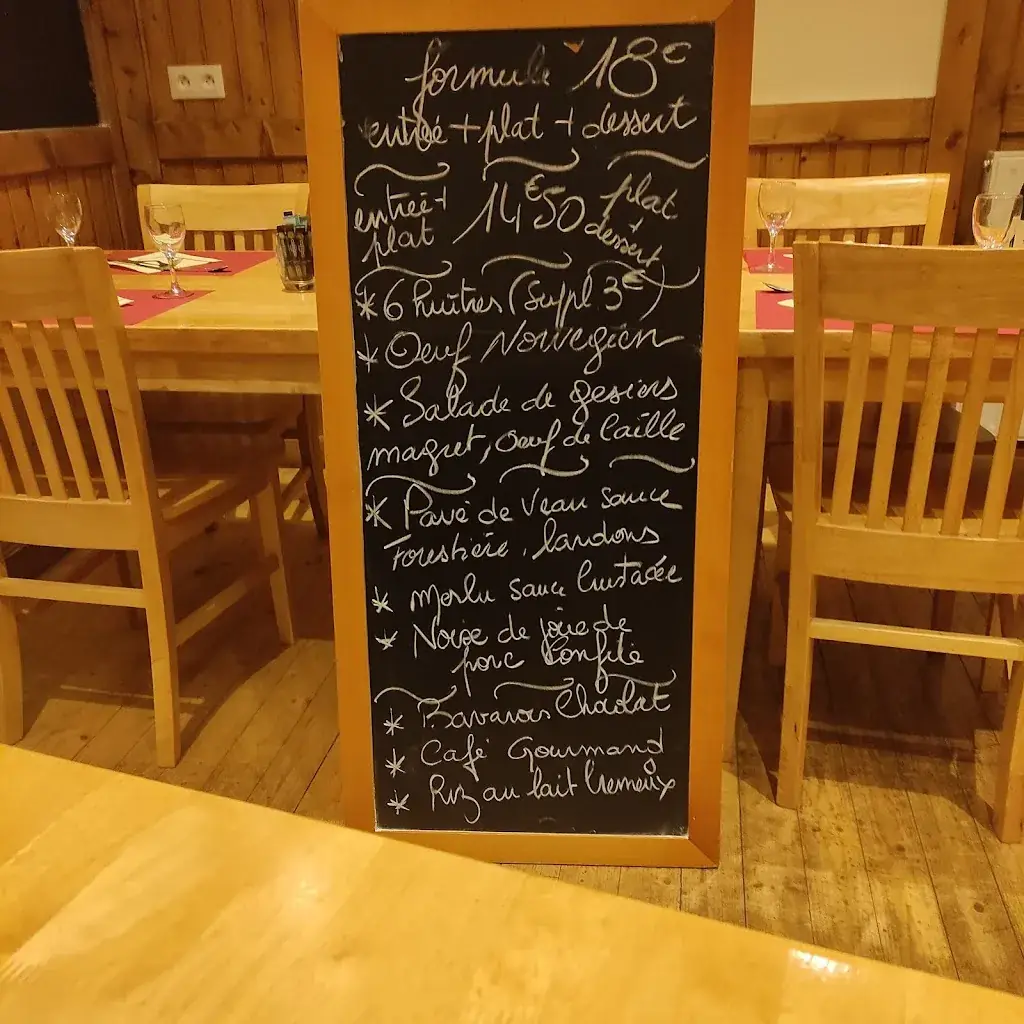 formule 18€
entrée + plat + dessert
entrée +
plat
14€50
plat
+
dessert
* 6 huîtres (Suppl 3€)
* Oeuf Norvegien
* Salade de gesiers
magret, oeuf de Caille
* Pavé de Veau sauce
Forestière, lardons
* Merlu sauce Crustacée
* Noixe de joue de
porc Confite
* Bavarois Chocolat
* Café Gourmand
* Riz au lait Cremeux